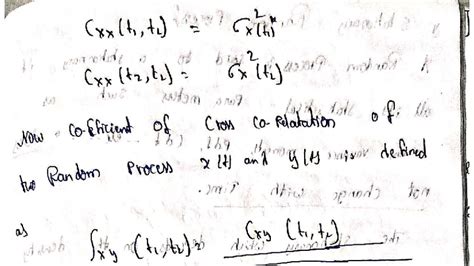 Cxx (t1, t1) = σx²(t1)
Cxx (t2, t2) = σx²(t2)
Now Co-Efficient Of Cross Co-relatation of
two Random Process x(t) and y(t) is defined
as
ρxy (t1, t2) = Cxy (t1, t2)